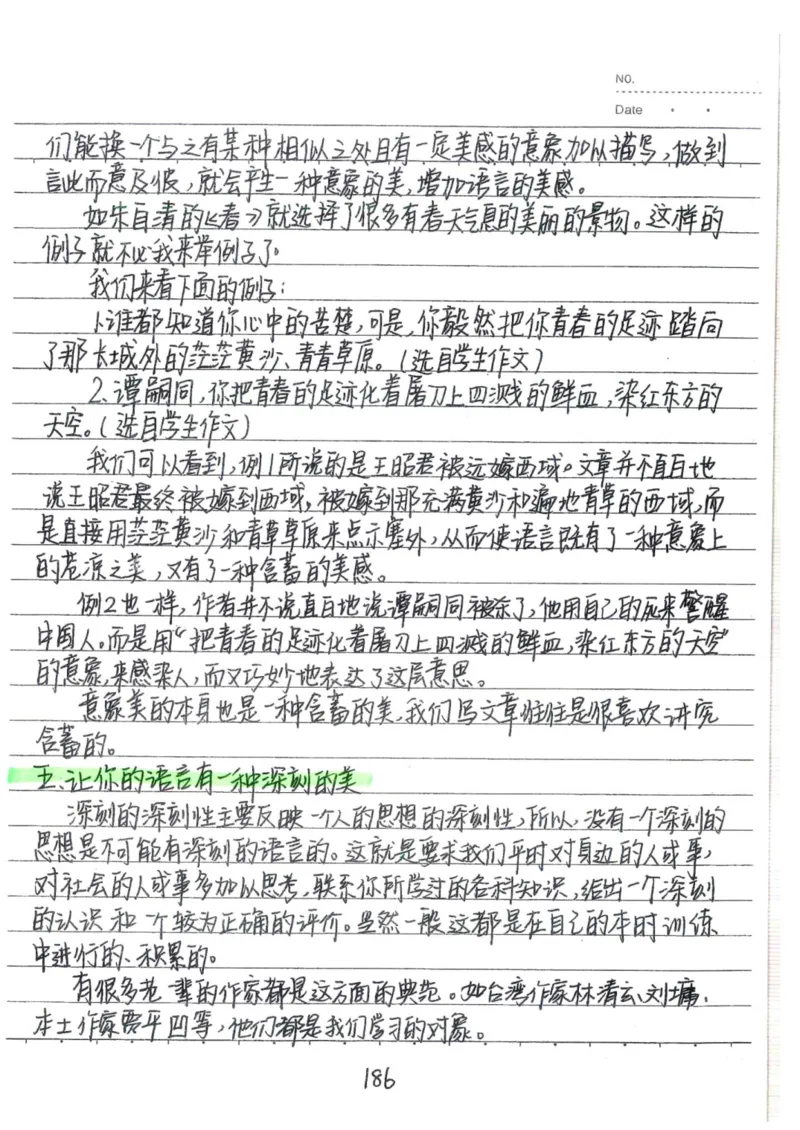 NO.
Date
们能换一个与之有某种相似之处且有一定美感的意象加以描写,做到
言此而意及彼,就会产生一种意象的美,增加语言的美感。
如朱自清的《春》就选择了很多有春天气息的美丽的景物。这样的
例子就不必我来举例子了。
我们来看下面的例子:
1.谁都知道你心中的苦楚,可是,你毅然把你青春的足迹踏向
了那长城外的茫茫黄沙、青青草原。(选自学生作文)
2.谭嗣同,你把青春的足迹化着屠刀上四溅的鲜血,染红东方的
天空。(选自学生作文)
我们可以看到,例1所说的是王昭君被远嫁西域。文章并不直白地
说王昭君最终被嫁到西域,被嫁到那充满黄沙和遍地青草的西域,而
是直接用茫茫黄沙和青草草原来点示塞外,从而使语言既有了一种意象上
的苍凉之美,又有了一种含蓄的美感。
例2也一样,作者并不说直白地说谭嗣同被杀了,他用自己的死来警醒
中国人。而是用“把青春的足迹化着屠刀上四溅的鲜血,染红东方的天空”
的意象,来感染人,而又巧妙地表达了这层意思。
意象美的本身也是一种含蓄的美,我们写文章往往是很喜欢讲究
含蓄的。
五、让你的语言有一种深刻的美
深刻的深刻性主要反映一个人的思想的深刻性,所以,没有一个深刻的
思想是不可能有深刻的语言的。这就是要求我们平时对身边的人或事,
对社会的人或事多加以思考,联系你所学过的各科知识,给出一个深刻
的认识和一个较为正确的评价。当然一般这都是在自己的本时训练
中进行的、积累的。
有很多老一辈的作家都是这方面的典范。如台湾作家林清玄、刘墉、
本土作家贾平凹等,他们都是我们学习的对象。
186